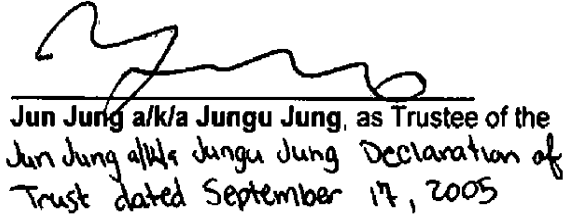 Jun Jung a/k/a Jungu Jung, as Trustee of the
Jun Jung a/k/a Jungu Jung Declaration of
Trust dated September 17, 2005